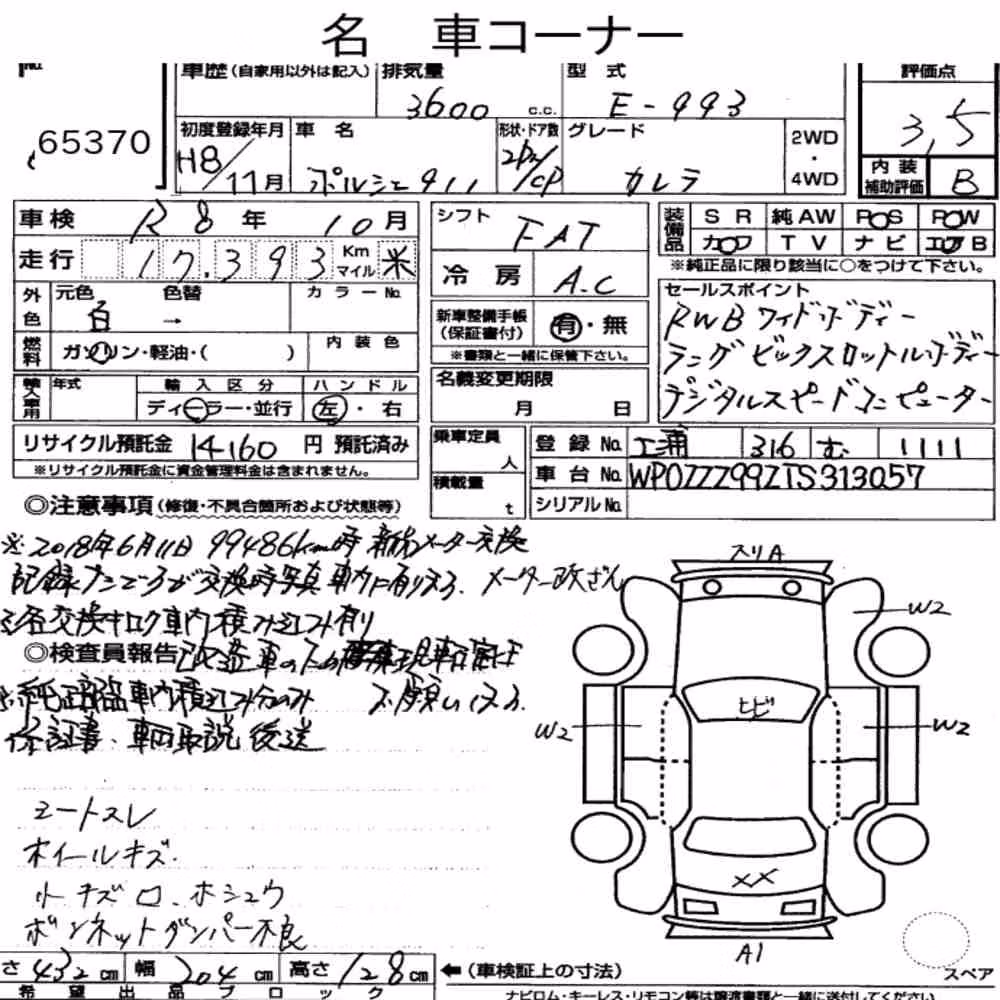 名 車コーナー
No.
65370
車歴(自家用以外は記入)
排気量
3600 c.c.
型 式
E-993
評価点
3,5
初度登録年月
H8/11月
車 名
ポルシェ911
形状・ドア数
2Dr/CP
グレード
カレラ
2WD
・
4WD
内 装
補助評価
B
車検 R8年 10月
走行 17.393 Km マイル 米
外色 元色 白 色替 → カラーNo.
燃料 ガソリン・軽油・( ) 内装色
輸入車用 年式 輸入区分 ディーラー・並行 ハンドル 左・右
リサイクル預託金 14160 円 預託済み
※リサイクル預託金に資金管理料金は含まれません。
シフト FAT
冷 房 A.C
新車整備手帳
(保証書付)
有・無
※書類と一緒に保管下さい。
名義変更期限
月 日
装備品 SR 純AW PS PW
カワ TV ナビ エアB
※純正品に限り該当に○をつけて下さい。
セールスポイント
RWB ワイドボディー
ラング ビックスロットルボディー
デジタルスピードコンピューター
乗車定員 人
積載量 t
登録No. 316 む 1111
車台No. WP0ZZZ99ZTS313057
シリアルNo.
◎注意事項(修復・不具合箇所および状態等)
※2018年6月11日 99486km時 メーター交換
記録 交換時写真 車内に有ります。 メーター改ざん
車内積み 有り
◎検査員報告 改造車の 現車確認
※純正部品車内積 分のみ お願いします。
保証書、車両取説 後送
シートスレ
ホイールキズ.
小キズ ロ. ホシュウ
ボンネットダンパー不良
スリA
W2
W2
W2
ヒビ
XX
A1
スペア
さ 432 cm 幅 204 cm 高さ 128 cm
←(車検証上の寸法)
希望出品ブロック
ナビロム・キーレス・リモコン等は譲渡書類と一緒に送付してください